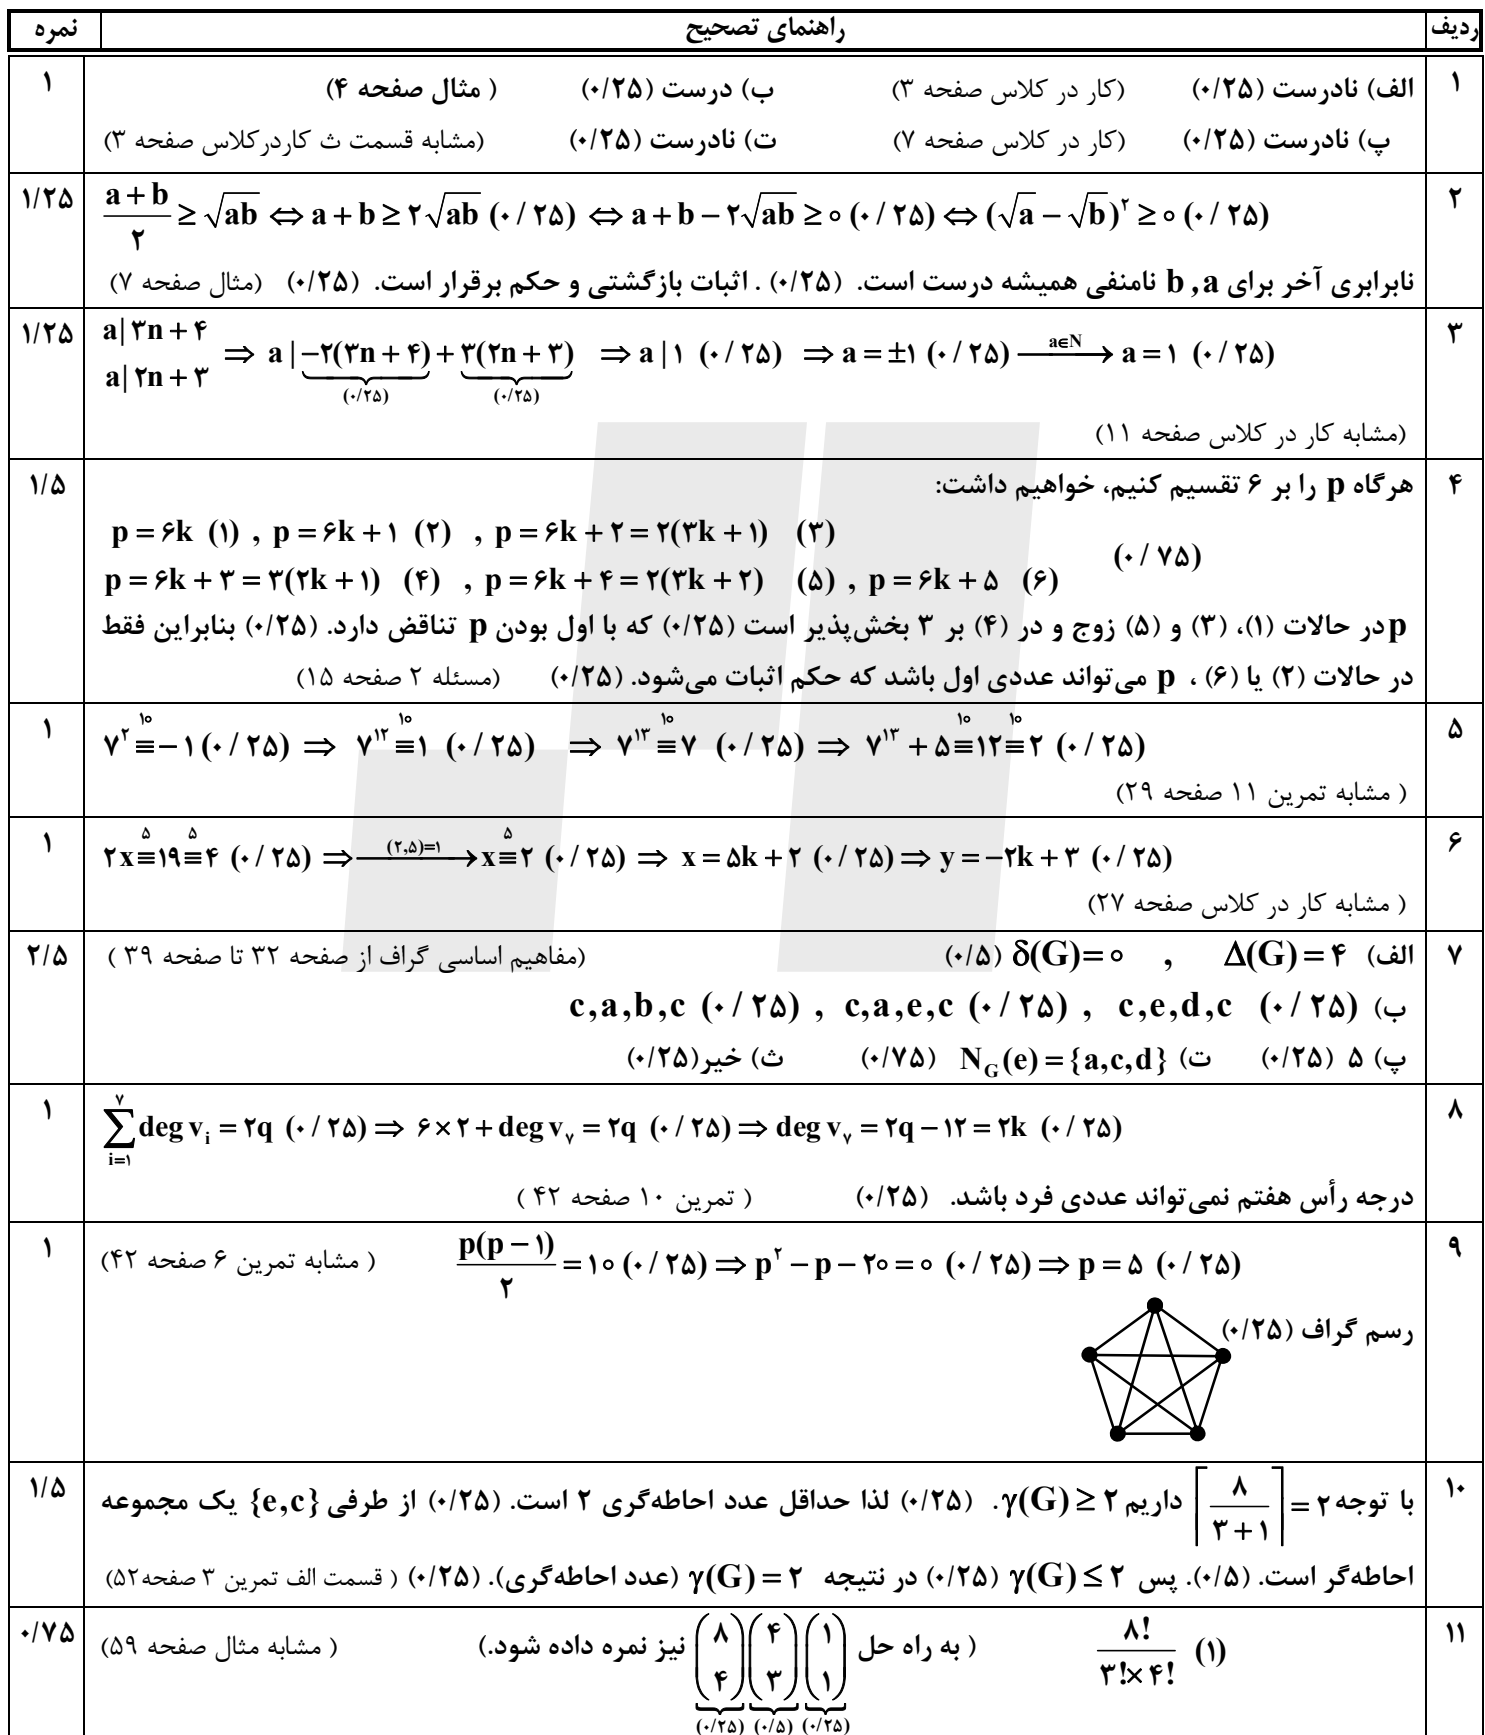 ردیف راهنمای تصحیح نمره
۱ الف) نادرست (۰/۲۵) (کار در کلاس صفحه ۳) ب) درست (۰/۲۵) ( مثال صفحه ۴) ۱
پ) نادرست (۰/۲۵) (کار در کلاس صفحه ۷) ت) نادرست (۰/۲۵) (مشابه قسمت ث کاردرکلاس صفحه ۳)
۲ (a+b)/۲ ≥ √ab ⇔ a+b ≥ ۲√ab (۰/۲۵) ⇔ a+b−۲√ab ≥ ۰ (۰/۲۵) ⇔ (√a − √b)^۲ ≥ ۰ (۰/۲۵) ۱/۲۵
نابرابری آخر برای b , a نامنفی همیشه درست است. (۰/۲۵) . اثبات بازگشتی و حکم برقرار است. (۰/۲۵) (مثال صفحه ۷)
۳ a|۳n+۴ , a|۲n+۳ ⇒ a | −۲(۳n+۴) (۰/۲۵) + ۳(۲n+۳) (۰/۲۵) ⇒ a|۱ (۰/۲۵) ⇒ a = ±۱ (۰/۲۵) —a∈N→ a = ۱ (۰/۲۵) ۱/۲۵
(مشابه کار در کلاس صفحه ۱۱)
۴ هرگاه p را بر ۶ تقسیم کنیم، خواهیم داشت: ۱/۵
p = ۶k (۱) , p = ۶k+۱ (۲) , p = ۶k+۲ = ۲(۳k+۱) (۳)
(۰/۷۵)
p = ۶k+۳ = ۳(۲k+۱) (۴) , p = ۶k+۴ = ۲(۳k+۲) (۵) , p = ۶k+۵ (۶)
p در حالات (۱)، (۳) و (۵) زوج و در (۴) بر ۳ بخش‌پذیر است (۰/۲۵) که با اول بودن p تناقض دارد. (۰/۲۵) بنابراین فقط
در حالات (۲) یا (۶) ، p می‌تواند عددی اول باشد که حکم اثبات می‌شود. (۰/۲۵) (مسئله ۲ صفحه ۱۵)
۵ ۷^۲ ≡^۱۰ −۱ (۰/۲۵) ⇒ ۷^۱۲ ≡^۱۰ ۱ (۰/۲۵) ⇒ ۷^۱۳ ≡^۱۰ ۷ (۰/۲۵) ⇒ ۷^۱۳ + ۵ ≡^۱۰ ۱۲ ≡^۱۰ ۲ (۰/۲۵) ۱
( مشابه تمرین ۱۱ صفحه ۲۹)
۶ ۲x ≡^۵ ۱۹ ≡^۵ ۴ (۰/۲۵) ⇒ —(۲,۵)=۱→ x ≡^۵ ۲ (۰/۲۵) ⇒ x = ۵k+۲ (۰/۲۵) ⇒ y = −۲k+۳ (۰/۲۵) ۱
( مشابه کار در کلاس صفحه ۲۷)
۷ الف) Δ(G) = ۴ , δ(G) = ۰ (۰/۵) (مفاهیم اساسی گراف از صفحه ۳۲ تا صفحه ۳۹ ) ۲/۵
ب) c,a,b,c (۰/۲۵) , c,a,e,c (۰/۲۵) , c,e,d,c (۰/۲۵)
پ) ۵ (۰/۲۵) ت) N_G(e) = {a,c,d} (۰/۷۵) ث) خیر(۰/۲۵)
۸ ∑_{i=۱}^{۷} deg v_i = ۲q (۰/۲۵) ⇒ ۶×۲ + deg v_۷ = ۲q (۰/۲۵) ⇒ deg v_۷ = ۲q−۱۲ = ۲k (۰/۲۵) ۱
درجه رأس هفتم نمی‌تواند عددی فرد باشد. (۰/۲۵) ( تمرین ۱۰ صفحه ۴۲ )
۹ p(p−۱)/۲ = ۱۰ (۰/۲۵) ⇒ p^۲ − p − ۲۰ = ۰ (۰/۲۵) ⇒ p = ۵ (۰/۲۵) ( مشابه تمرین ۶ صفحه ۴۲) ۱
رسم گراف (۰/۲۵)
۱۰ با توجه ⌈۸/(۳+۱)⌉ = ۲ داریم γ(G) ≥ ۲. (۰/۲۵) لذا حداقل عدد احاطه‌گری ۲ است. (۰/۲۵) از طرفی {e,c} یک مجموعه ۱/۵
احاطه‌گر است. (۰/۵). پس γ(G) ≤ ۲ (۰/۲۵) در نتیجه γ(G) = ۲ (عدد احاطه‌گری). (۰/۲۵) ( قسمت الف تمرین ۳ صفحه۵۲)
۱۱ ۸!/(۳!×۴!) (۱) ( به راه حل (۸ ۴)(۴ ۳)(۱ ۱) نیز نمره داده شود.) ( مشابه مثال صفحه ۵۹) ۰/۷۵
(۰/۲۵) (۰/۵) (۰/۲۵)